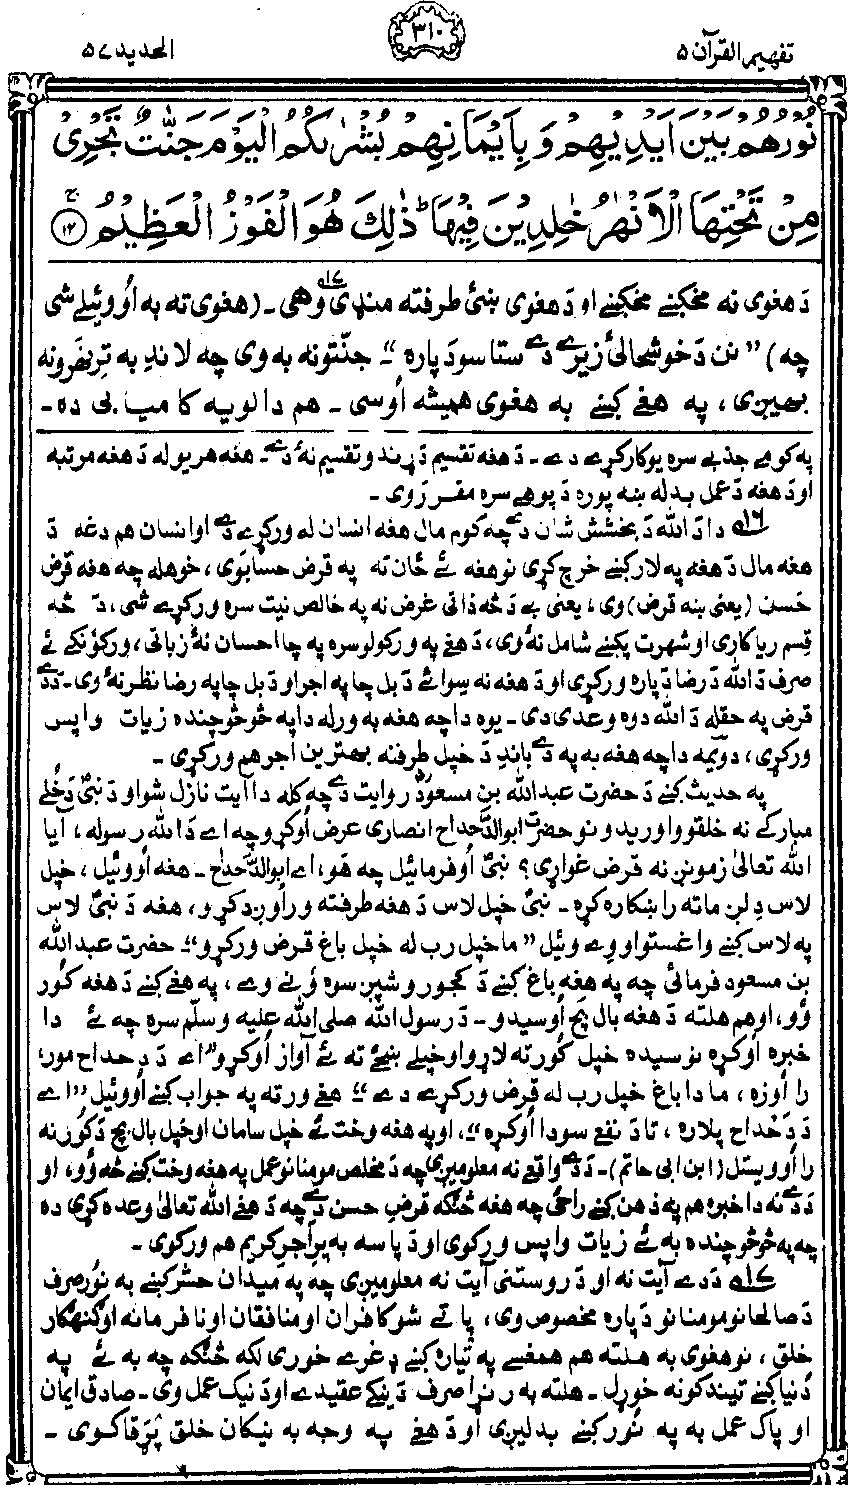 تفهيم القرآن ۵
۳۱۰
الحديد ۵۷
نُوْرُهُمْ بَيْنَ اَيْدِيْهِمْ وَبِاَيْمَانِهِمْ بُشْرٰىكُمُ الْيَوْمَ جَنّٰتٌ تَجْرِيْ
مِنْ تَحْتِهَا الْاَنْهٰرُ خٰلِدِيْنَ فِيْهَا ؕ ذٰلِكَ هُوَ الْفَوْزُ الْعَظِيْمُ ۱۲ ج
دَ هغوى نه مخکښے مخکښے او دَ هغوى ښئ طرفته منډى ۱۷ وهى ـ (هغوى ته به اُووئيلے شى
چه) "نن دَ خوشحالئ زيرے دے ستاسو دَ پاره" ـ جنّتونه به وى چه لاندِ به تر نهرونه
بهيږى، په هغے کښے به هغوى هميشه اُوسى ـ هم دا لويه کاميابى ده ـ
په کومے جذبے سره يو کار کړے دے ـ دَ هغه تقسيم دَ ړندو تقسيم نهٔ دے ـ هغه هر يو له دَ هغه مرتبه
او دَ هغه دَ عمل بدله ښه پوره دَ پوهے سره مقرروى ـ
۱۶ دا دَ الله دَ بخشش شان دے چه کوم مال هغه انسان له ورکړے دے او انسان هم دغه دَ
هغه مال دَ هغه په لار کښے خرچ کړى نو هغه ئے ځان ته په قرض حسابوى، خو هله چه هغه قرض
حَسن (يعنى ښه قرض) وى، يعنى بے دَ څه ذاتى غرض نه په خالص نيت سره ورکړے شى، دَ څه
قِسم رياکارى او شهرت پکښے شامل نهٔ وى، دَ هغے په ورکولو سره په چا احسان نهٔ زباتى، ورکوُنکے ئے
صرف دَ الله دَ رضا دَ پاره ورکړى او دَ هغه نه سِوائے دَ بل چا په اجر او دَ بل چا په رضا نظر نهٔ وى ـ دَ دے
قرض په حقله دَ الله دوه وعدى دى ـ يوه دا چه هغه به ورله دا په څو څو چنده زيات واپس
ورکړى، دوئيمه دا چه هغه به په دے باندِ دَ خپل طرفته بهترين اجر هم ورکړى ـ
په حديث کښے دَ حضرت عبد الله بن مسعودؓ روايت دے چه کله دا آيت نازل شو او دَ نبىؐ دَ خُلے
مبارکے نه خلقو واوريدو نو حضرت ابوالدَّحداح انصارى عرض اُوکړو چه اے دَ الله رسوله، آيا
الله تعالىٰ زمونږ نه قرض غواړى؟ نبىؐ اُوفرمائيل چه هَو، اے ابوالدَّحداح ـ هغه اُووئيل، خپل
لاس دِ لږ ماته را ښکاره کړه ـ نبىؐ خپل لاس دَ هغه طرفته وراُوږد کړو، هغه دَ نبىؐ لاس
په لاس کښے واغستو او وے وئيل "ما خپل رب له خپل باغ قرض ورکړو" ـ حضرت عبد الله
بن مسعود فرمائى چه په هغه باغ کښے دَ کجورو شپږ سوه وَنے وے، په هغے کښے دَ هغه کور
وُو، او هم هلته دَ هغه بال بچ اُوسيدو ـ دَ رسول الله صلى الله عليه وسلّم سره چه ئے دا
خبره اُوکړه نو سيده خپل کور ته لاړو او خپلے ښځے ته ئے آواز اُوکړو "اے دَ دحداح مورے
را اُوزه، ما دا باغ خپل رب له قرض ورکړے دے" هغے ورته په جواب کښے اُووئيل "اے
دَ دَحداح پلاره، تا دَ نفع سودا اُوکړه"، او په هغه وخت ئے خپل سامان او خپل بال بچ دَ کور نه
را اُوويستل (ابن ابى حاتم) ـ دَ دے واقعے نه معلوميږى چه دَ مخلص مومنانو عمل په هغه وخت کښے څه وُو، او
دَ دے نه دا خبره هم په ذهن کښے راځى چه هغه څنګه قرضِ حسن دے چه دَ هغے الله تعالىٰ وعده کړى ده
چه په څو څو چنده به ئے زيات واپس ورکوى او دَ پاسه به پرِ اجرِ کريم هم ورکوى ـ
۱۷ دَ دے آيت نه او دَ روستنى آيت نه معلوميږى چه په ميدان حشر کښے به نُور صرف
دَ صالحانو مومنانو دَ پاره مخصوص وى، پاتے شو کافران او منافقان او نافرمانه او ګنهګار
خلق، نو هغوى به هلته هم همغسے په تيارهٔ کښے دِغرے خورى لکه څنګه چه به ئے په
دُنيا کښے تيندکونه خوړل ـ هلته به رنړا صرف دَ نيکے عقيدے او دَ نيک عمل وى ـ صادق ايمان
او پاک عمل به په نُور کښے بدليږى او دَ هغے په وجه به نيکان خلق پړقاکوى ـ